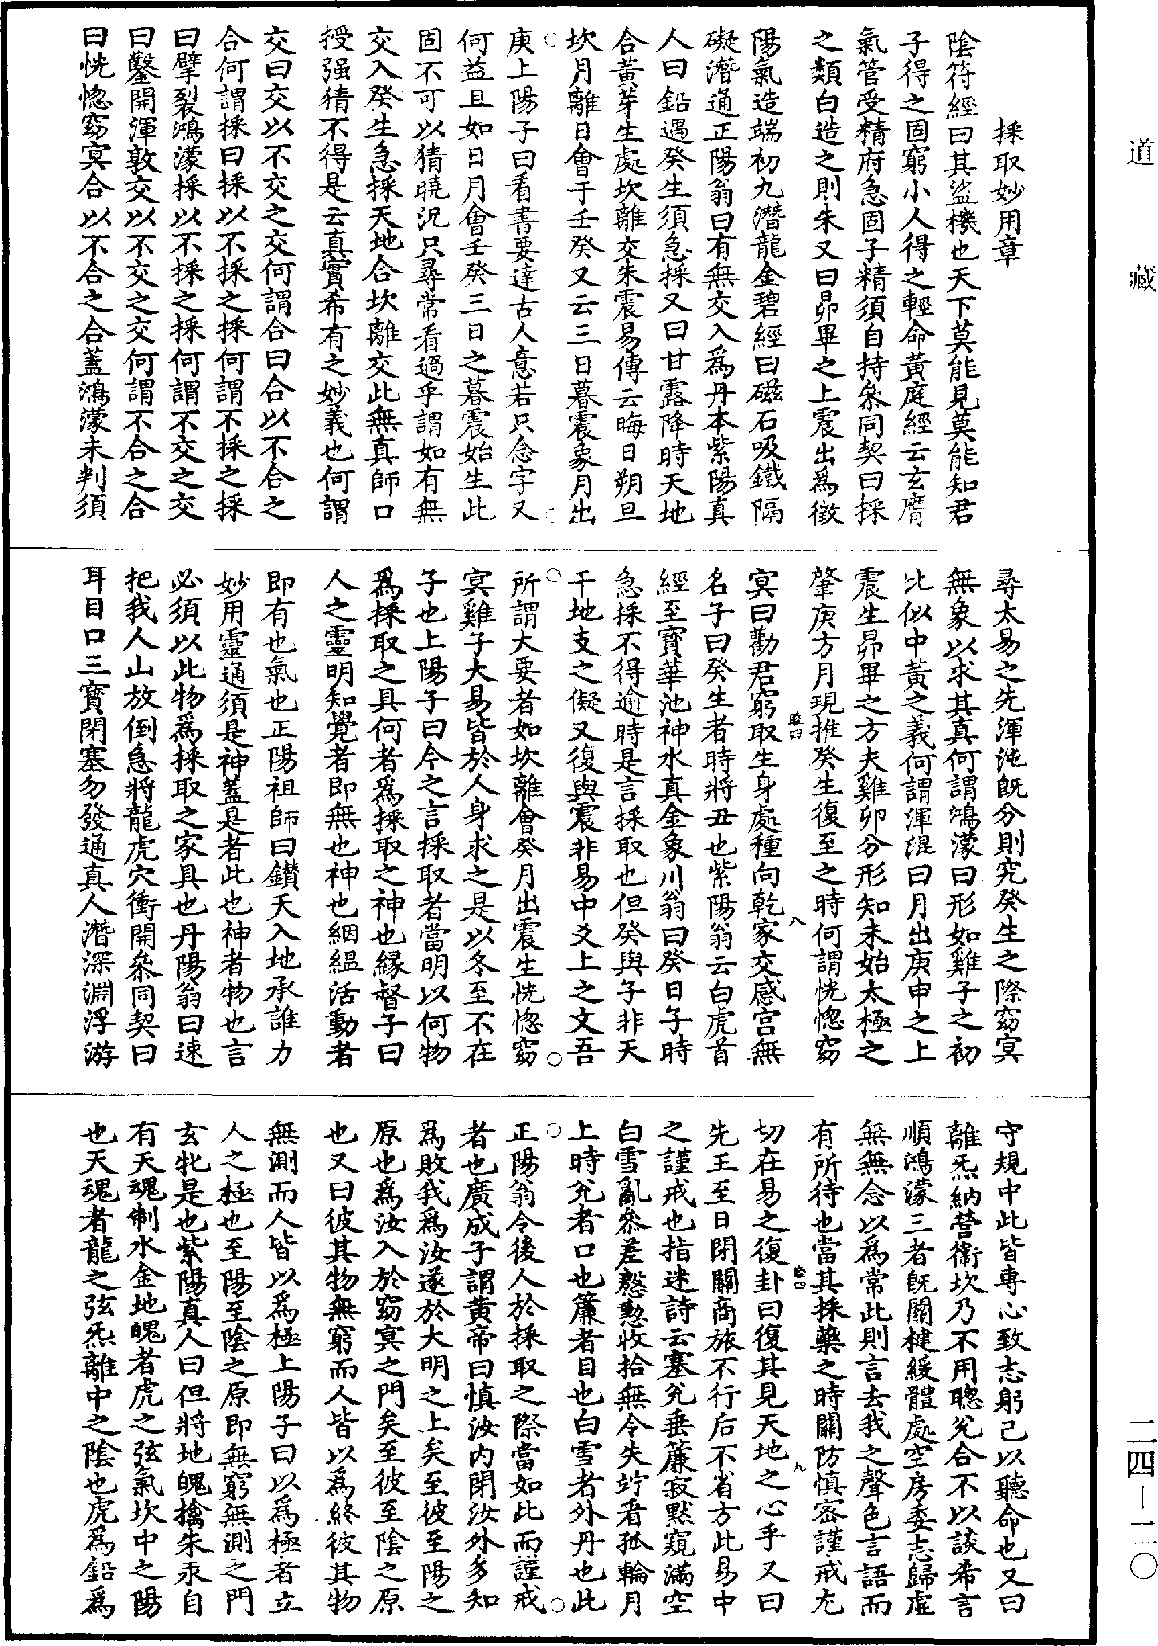 道藏
採取妙用章
陰符經曰其盜機也天下莫能見莫能知君
子得之固窮小人得之輕命黃庭經云玄膺
氣管受精府急固子精須自持叅同契曰採
之類白造之則朱又曰昴畢之上震出為徵
陽氣造端初九潛龍金碧經曰磁石吸鐵隔
礙潛通正陽翁曰有無交入為丹本紫陽真
人曰鉛遇癸生須急採又曰甘露降時天地
合黃芽生處坎離交朱震易傳云晦日朔旦
坎月離日會于壬癸又云三日暮震象月出
庚上陽子曰看書要達古人意若只念字又
何益且如日月會壬癸三日之暮震始生此
固不可以猜曉況只尋常看過乎謂如有無
交入癸生急採天地合坎離交此無真師口
授强猜不得是云真實希有之妙義也何謂
交曰交以不交之交何謂合曰合以不合之
合何謂採曰採以不採之採何謂不採之採
曰擘裂鴻濛採以不採之採何謂不交之交
曰鑿開渾敦交以不交之交何謂不合之合
曰恍惚窈冥合以不合之合蓋鴻濛未判須
尋太易之先渾沌既分則究癸生之際窈冥
無象以求其真何謂鴻濛曰形如雞子之初
比似中黃之義何謂渾混曰月出庚申之上
震生昴畢之方夫雞卵分形知未始太極之
肇庚方月現推癸生復至之時何謂恍惚窈
冥曰勸君窮取生身處種向乾家交感宫無
名子曰癸生者時將丑也紫陽翁云白虎首
經至寶華池神水真金象川翁曰癸日子時
急採不得逾時是言採取也但癸與子非天
干地支之儗又復與震非易中爻上之文吾
所謂大要者如坎離會癸月出震生恍惚窈
冥雞子大易皆於人身求之是以冬至不在
子也上陽子曰今之言採取者當明以何物
為採取之具何者為採取之神也緣督子曰
人之靈明知覺者即無也神也絪縕活動者
即有也氣也正陽祖師曰鑚天入地承誰力
妙用靈通須是神蓋是者此也神者物也言
必須以此物為採取之家具也丹陽翁曰速
把我人山放倒急將龍虎穴衝開叅同契曰
耳目口三寳閉塞勿發通真人潛深淵浮游
守規中此皆專心致志躬己以聽命也又曰
離炁納營衛坎乃不用聰兌合不以談希言
順鴻濛三者既關楗緩體處空房委志歸虛
無無念以為常此則言去我之聲色言語而
有所待也當其採藥之時關防慎密謹戒尤
切在易之復卦曰復其見天地之心乎又曰
先王至日閉關商旅不行后不省方此易中
之謹戒也指迷詩云塞兌垂簾寂默窺滿空
白雪亂參差慇懃收拾無令失竚看孤輪月
上時兌者口也簾者目也白雪者外丹也此
正陽翁令後人於採取之際當如此而謹戒
者也廣成子謂黃帝曰慎汝内閉汝外多知
為敗我為汝遂於大明之上矣至彼至陽之
原也為汝入於窈冥之門矣至彼至陰之原
也又曰彼其物無窮而人皆以為終彼其物
無測而人皆以為極上陽子曰以為極者立
人之極也至陽至陰之原即無窮無測之門
玄牝是也紫陽真人曰但將地魄擒朱汞自
有天魂制水金地魄者虎之弦氣坎中之陽
也天魂者龍之弦炁離中之陰也虎為鉛為
八
九
二四—二一〇